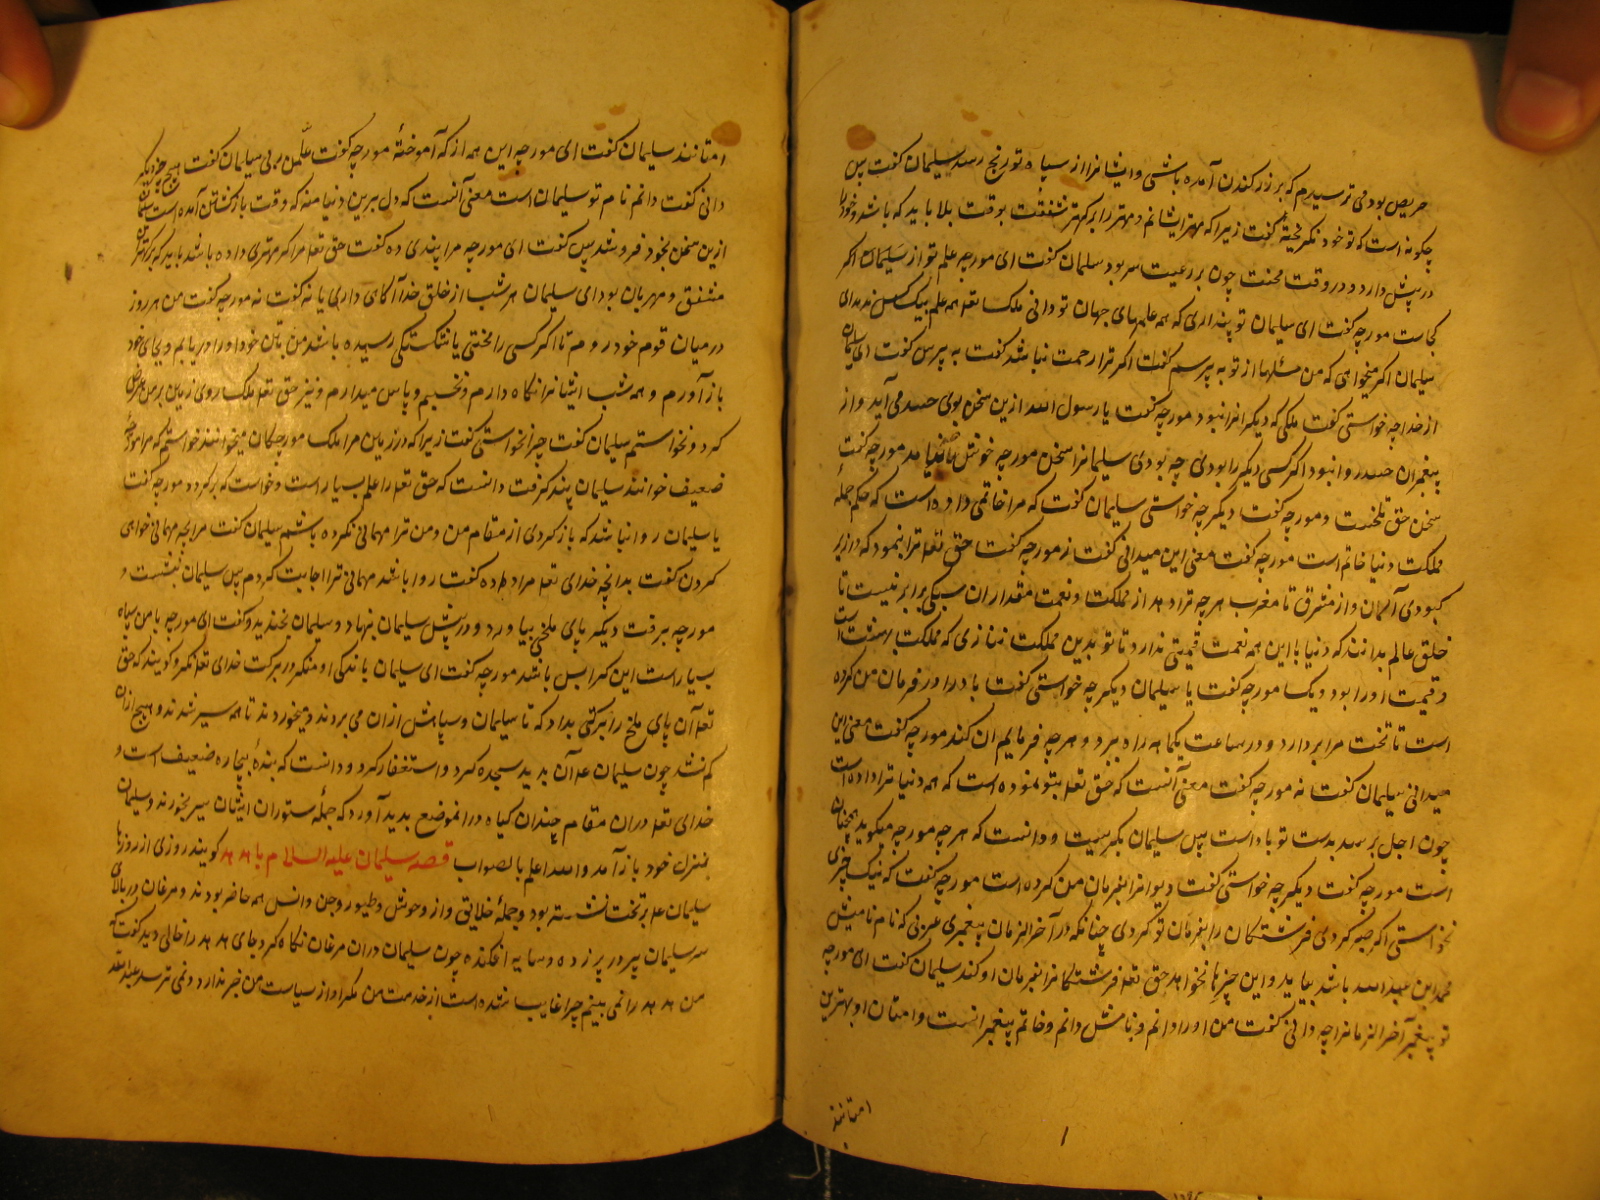 حریص بودی ترسیدم که بر زر کندن آمده باشی و ایشانرا از سپاه تو رنج رسد سلیمان گفت پس
چگونه است که تو خود نگریختهٔ گفت زیرا که مهتر ایشانم و مهتر را بر کهتر شفقت بوقت بلا باید که باشد و خود را
در پیش دارد و در وقت محنت چون بر رعیت سر بود سلیمان گفت ای مورچه علم تو از سلیمان اگر
کجاست مورچه گفت ای سلیمان تو پنداری که همه علمهای جهان تو دانی ملک تعا همه علم بیک کس ندهد ای
سلیمان اگر میخواهی که من مسئلها از تو به پرسم گفت اگر ترا رحمت نباشد گفت به پرس گفت ای سلیمان
از خدا چه خواستی گفت ملکی که دیگرانرا نبود مورچه گفت یا رسول الله ازین سخن بوی حسد می آید و از
پیغمبران حسد روا نبود اگر کسی دیگر را بودی چه بودی سلیمانرا سخن مورچه خوشش نیامد مورچه گفت
سخن حق تلخست و مورچه گفت دیگر چه خواستی سلیمان گفت که مرا خاتمی داده است که حکم جملهٔ
مملکت دنیا خاتم است مورچه گفت معنی این میدانی گفت نه مورچه گفت حق تعا ترا بنمود که از زیر
کبودی آسمان و از مشرق تا مغرب هر چه ترا دهد از مملکت و نعمت مقدار آن سنگی برابر نیست تا
خلق عالم بدانند که دنیا با این همه نعمت قیمتی ندارد تا تو بدین مملکت ننازی که مملکت بهشت است
و قیمت او را بود و یک مورچه گفت یا سلیمان دیگر چه خواستی گفت باد را در فرمان من کرده
است تا تخت مرا بردارد و در ساعت یکماهه راه ببرد و هر چه فرمایم آن کند مورچه گفت معنی این
میدانی سلیمان گفت نه مورچه گفت معنی آنست که حق تعا بتو نموده است که همه دنیا ترا داده است
چون اجل برسد بدست تو باد است پس سلیمان بگریست و دانست که هر چه مورچه میگوید همچنان
است مورچه گفت دیگر چه خواستی گفت دیوانرا بفرمان من کرده است مورچه گفت که نیک چیزی
نخواستی اگر صبر کردی فرشتگان را بفرمان تو کردی چنانکه در آخر الزمان پیغمبری عربی که نام نامیش
محمد ابن عبد الله باشد بیاید و این چیزها نخواهد حق تعا فرشتگانرا بفرمان او کند سلیمان گفت ای مورچه
تو پیغمبر آخر الزمانرا چه دانی گفت من او را دانم و نامش دانم و خاتم پیغمبرانست و امتان او بهترین
امتانند
امتانند سلیمان گفت ای مورچه این همه از که آموختهٔ مورچه گفت علّمنی ربی سلیمان گفت هیچ چیز دیگر
دانی گفت دانم نام تو سلیمان است معنی آنست که دل برین دنیا منه که وقت بازگشتن آمده است سلیمان
ازین سخن بخود فرو شد پس گفت ای مورچه مرا پندی ده گفت حق تعا مرا اگر مهتری داده باشد باید که بر کهتران
مشفق و مهربان بود ای سلیمان هر شب از خلق خدا آگاهی داری یا نه گفت نه مورچه گفت من هر روز
در میان قوم خود روم تا اگر کسی را محنتی یا شکستگی رسیده باشد من بتن خود او را دریابم و بجای خود
باز آورم و همه شب ایشانرا نگاه دارم و نخسپم و پاس میدارم و نیز حق تعا ملک روی زمین بر من عرض
کرد و نخواستم سلیمان گفت چرا نخواستی گفت زیرا که در زمین مرا ملک مورچکان میخوانند خواستم که مرا مورچهٔ
ضعیف خوانند سلیمان پند گرفت دانست که حق تعا را علم بسیار است و خواست که برگردد مورچه گفت
یا سلیمان روا نباشد که باز گردی از مقام من و من ترا مهمانی نکرده باشم سلیمان گفت مرا بچه مهمانی خواهی
کردن گفت بدانچه خدای تعا مرا داده گفت روا باشد مهمانی ترا اجابت کردم پس سلیمان بنشست و
مورچه برفت و یک پای ملخی بیاورد و در پیش سلیمان بنهاد و سلیمان بخندید و گفت ای مورچه با من سپاه
بسیار است این کرا بس باشد مورچه گفت ای سلیمان باندکی او منگر در برکت خدای تعا نگر و گویند که حق
تعا آن پای ملخ را برکتی بداد که تا سلیمان و سپاهش از آن می بردند و میخوردند تا همه سیر شدند و هیچ از آن
کم نشد چون سلیمان ع م آن بدید سجده کرد و استغفار کرد و دانست که بندهٔ بیچاره ضعیف است و
خدای تعا در آن مقام چندان گیاه در آنموضع بدید آورد که جملهٔ ستوران ایشان سیر بخورند و سلیمان
بمنزل خود باز آمد والله اعلم بالصواب قصه سلیمان علیه السلام با هدهد گویند روزی از روزها
سلیمان ع م بر تخت نشسته بود و جملهٔ خلایق و از وحوش و طیور و جن و انس همه حاضر بودند و مرغان در بالای
سر سلیمان پر در پر زده و سایه افکنده چون سلیمان در آن مرغان نگاه کرد جای هدهد را خالی دید گفت که
من هدهد را نمی بینم چرا غایب شده است از خدمت من مگر او از سیاست من خبر ندارد و نمی ترسد عبد الله